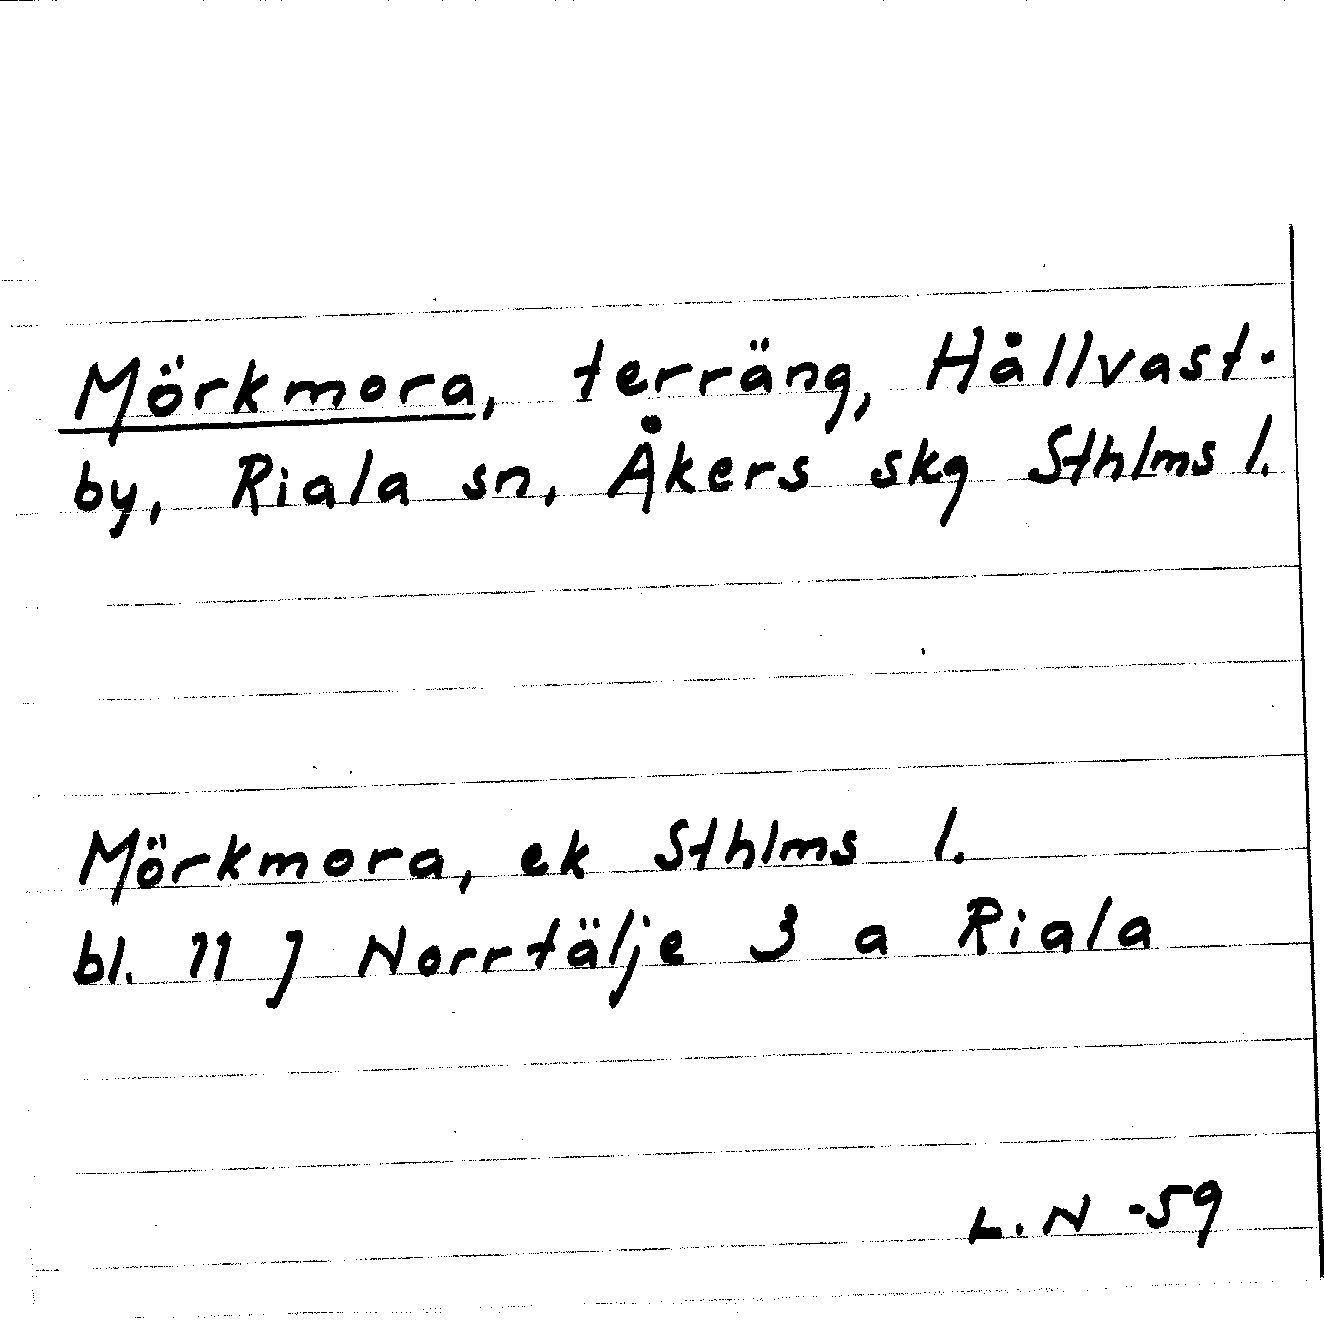 Mörkmora, terräng, Hållvast-
by, Riala sn, Åkers skg Sthlms l.
Mörkmora, ek Sthlms l.
bl. 11 J Norrtälje 3 a Riala
L.N -59